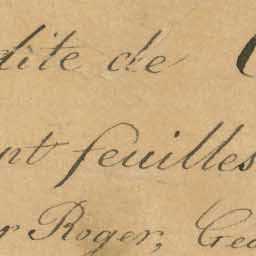 dite de
nt feuilles
r Roger, Geo